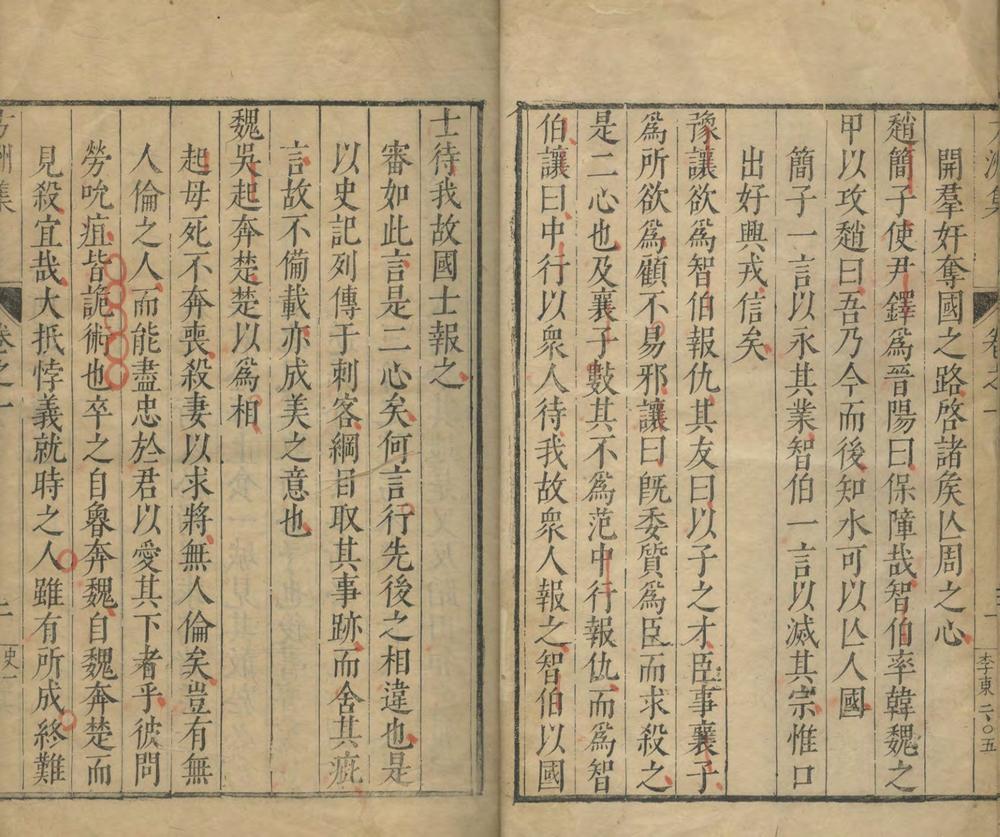 開羣奸奪國之路啓諸矦亾周之心
趙簡子使尹鐸爲晉陽曰保障哉智伯率韓魏之
甲以攻趙曰吾乃今而後知水可以亾人國
簡子一言以永其業智伯一言以滅其宗惟口
出好興戎信矣
豫讓欲爲智伯報仇其友曰以子之才臣事襄子
爲所欲爲顧不易邪讓曰旣委質爲臣而求殺之
是二心也及襄子數其不爲范中行報仇而爲智
伯讓曰中行以衆人待我故衆人報之智伯以國
李東二〇五
士待我故國士報之
審如此言是二心矣何言行先後之相違也是
以史記列傳于刺客綱目取其事跡而舍其疵
言故不備載亦成美之意也
魏吳起奔楚楚以爲相
起母死不奔喪殺妻以求將無人倫矣豈有無
人倫之人而能盡忠於君以愛其下者乎彼問
勞吮疽皆詭術也卒之自魯奔魏自魏奔楚而
見殺宜哉大抵悖義就時之人雖有所成終難
洲集 卷之一 二 史一